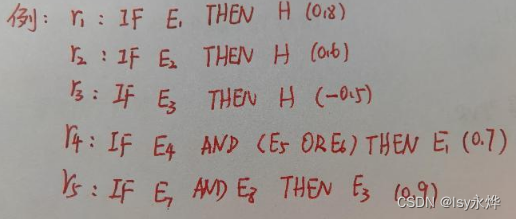 例: r₁: IF E₁ THEN H (0.8)
r₂: IF E₂ THEN H (0.6)
r₃: IF E₃ THEN H (-0.5)
r₄: IF E₄ AND (E₅ OR E₆) THEN E₁ (0.7)
r₅: IF E₇ AND E₈ THEN E₃ (0.9)
CSDN @lsy永烨